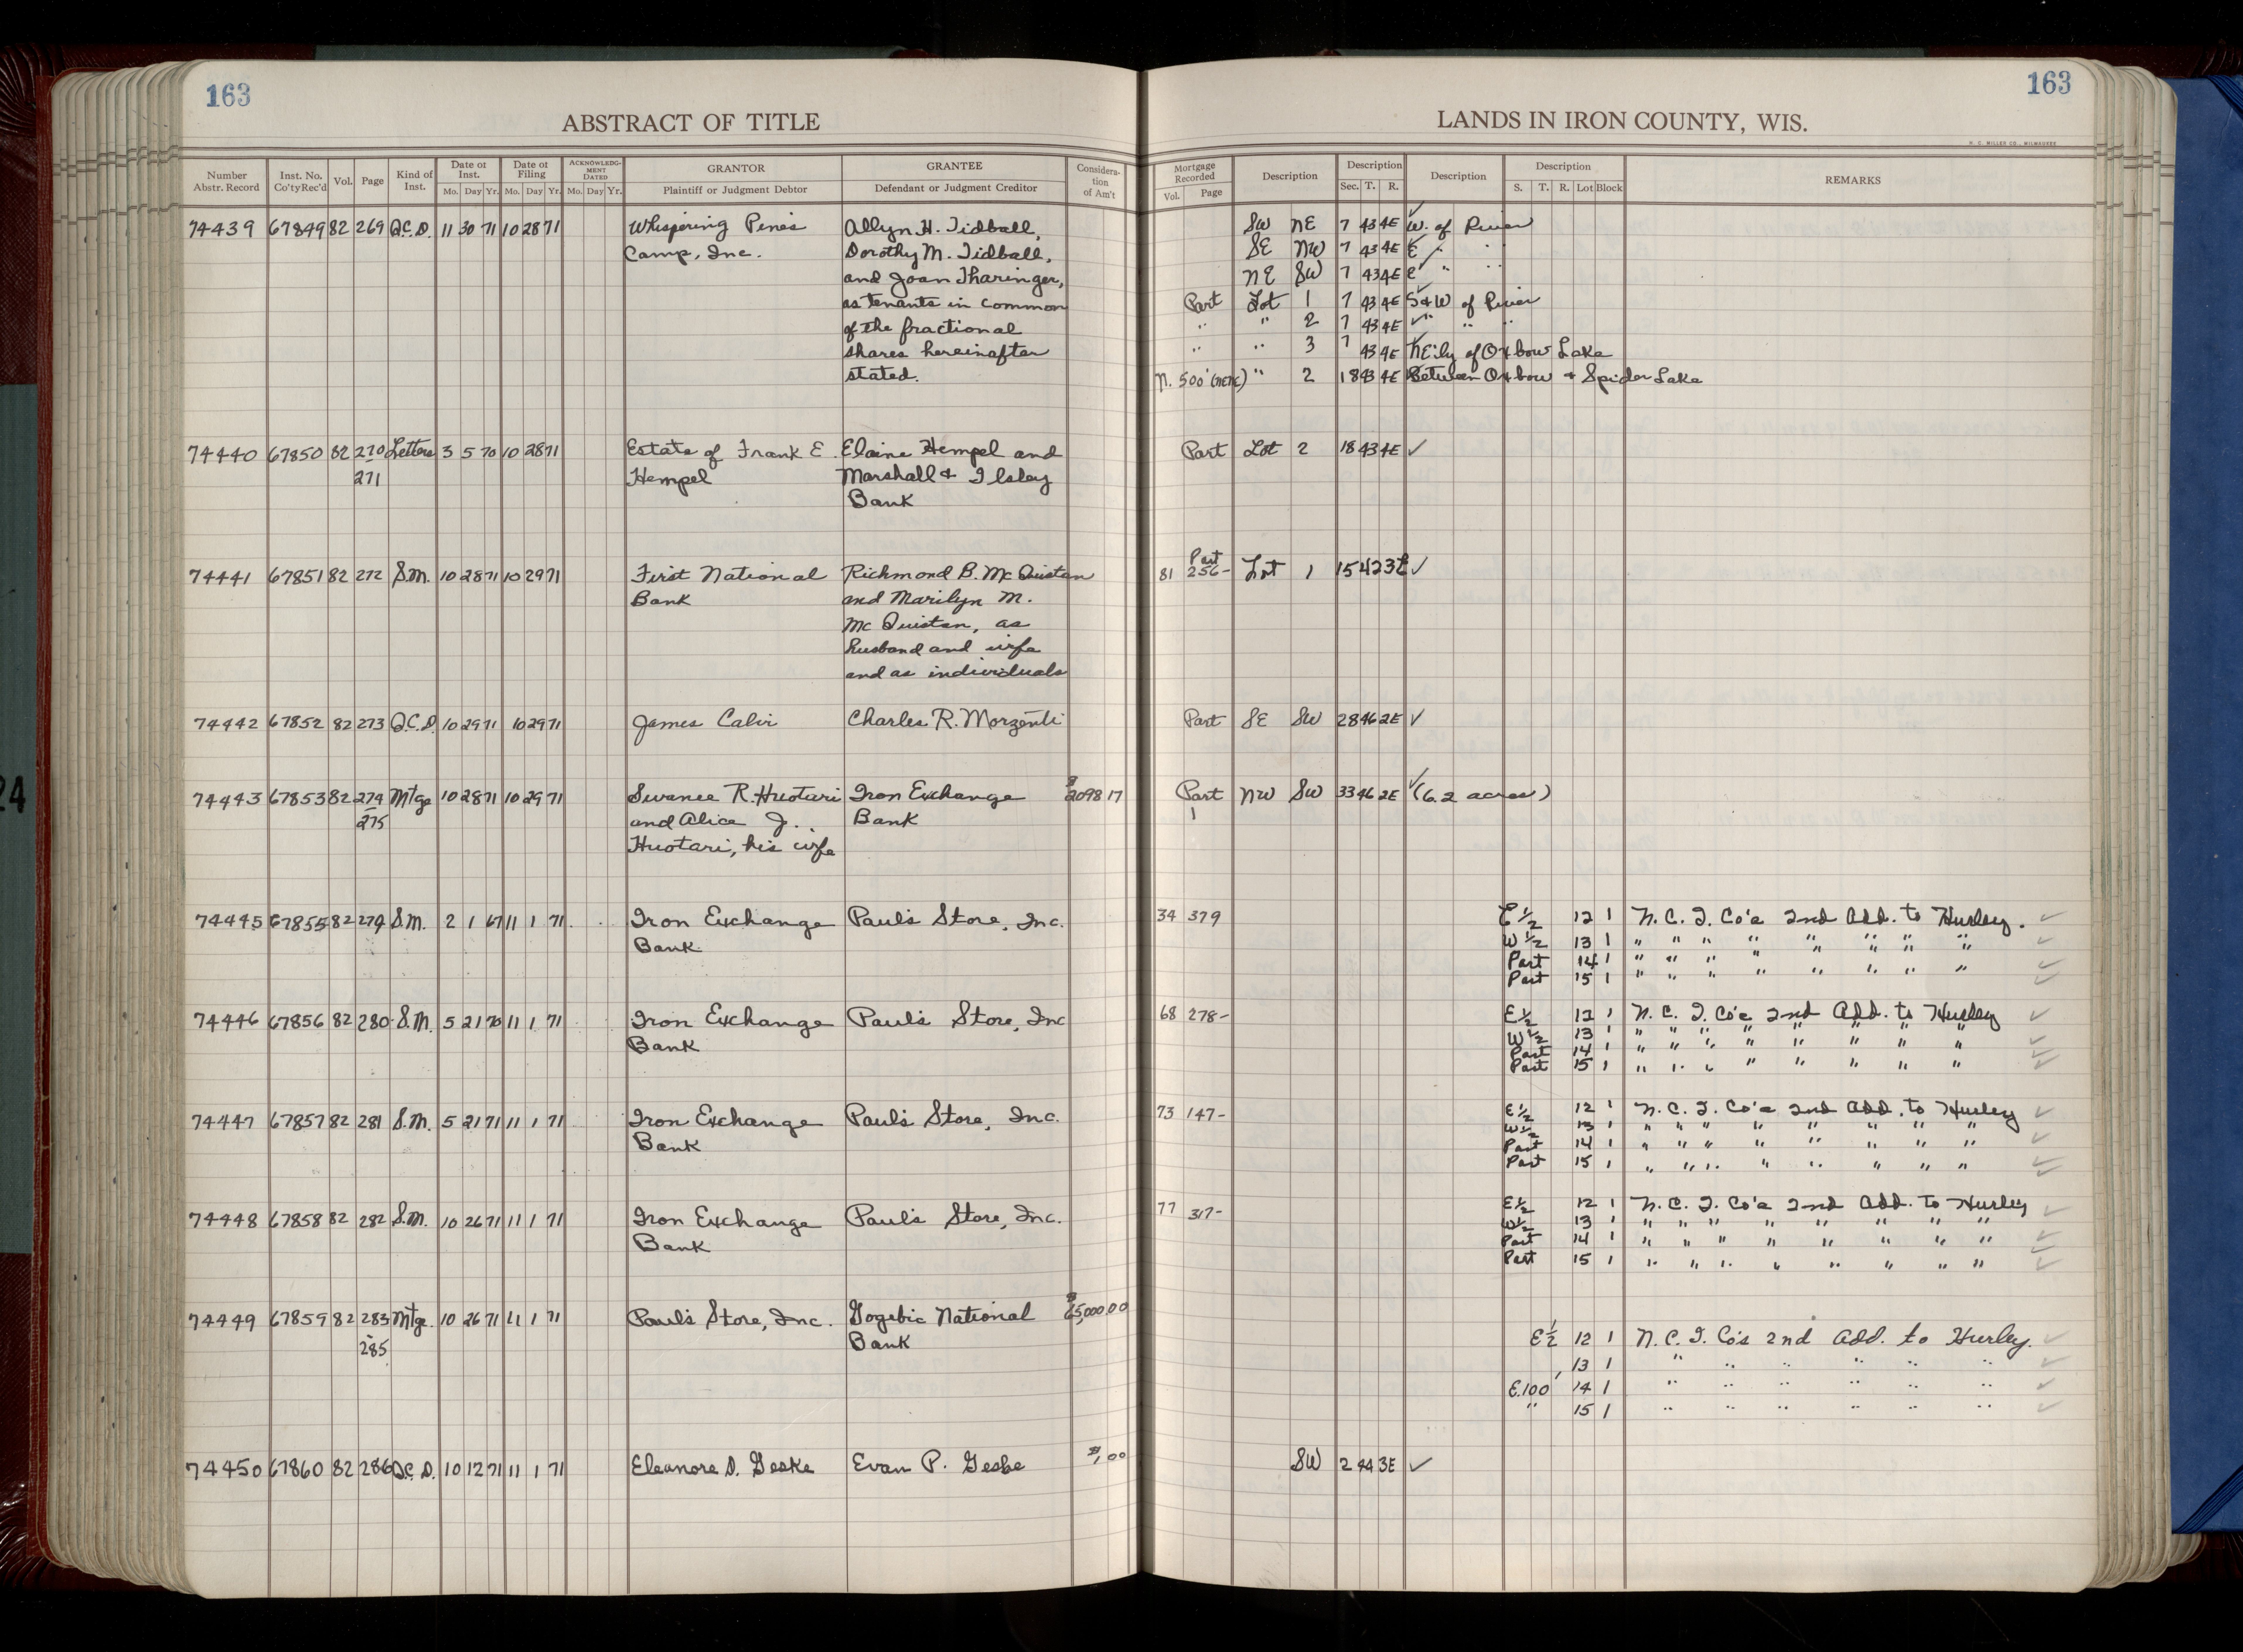 163
163
ABSTRACT OF TITLE
LANDS IN IRON COUNTY, WIS.
H. C. MILLER CO., MILWAUKEE
Number Abstr. Record Inst. No. Co'tyRec'd Vol. Page Kind of Inst. Date of Inst. Mo. Day Yr. Date of Filing Mo. Day Yr. ACKNOWLEDGMENT DATED Mo. Day Yr. GRANTOR Plaintiff or Judgment Debtor GRANTEE Defendant or Judgment Creditor Consideration of Am't Mortgage Recorded Vol. Page Description Description Sec. T. R. Description Description S. T. R. Lot Block REMARKS
74439 67849 82 269 Q.C.D. 11 30 71 10 28 71 Whispering Pines Allyn H. Tidball, SW NE 7 43 4E W. of River
Camp, Inc. Dorothy M. Tidball, SE NW 7 43 4E E " "
and Joan Tharinger, NE SW 7 43 4E E " "
as tenants in common Part Lot 1 7 43 4E S & W of River
of the fractional " " 2 7 43 4E " " "
shares hereinafter " " 3 7 43 4E NE'ly of Oxbow Lake
stated. N. 500' (NENE) " 2 18 43 4E Between Oxbow + Spider Lake
74440 67850 82 270 Letters 3 5 70 10 28 71 Estate of Frank E. Elaine Hempel and Part Lot 2 18 43 4E ✓
271 Hempel Marshall & Ilsley
Bank
74441 67851 82 272 S.M. 10 28 71 10 29 71 First National Richmond B. McQuistan 81 Part 256- Lot 1 15 42 3E ✓
Bank and Marilyn M.
McQuistan, as
husband and wife
and as individuals
74442 67852 82 273 Q.C.D. 10 29 71 10 29 71 James Calvi Charles R. Morzenti Part SE SW 28 46 2E ✓
74443 67853 82 274 Mtge 10 28 71 10 29 71 Swanee R. Huotari Iron Exchange $2098 17 Part NW SW 33 46 2E ✓ (6.2 acres)
275 and Alice J. Bank
Huotari, his wife
74445 67855 82 279 S.M. 2 1 67 11 1 71 Iron Exchange Paul's Store, Inc. 34 379 E½ 12 1 N. C. I. Co's 2nd Add. to Hurley. ✓
Bank W½ 13 1 " " " " " " " " ✓
Part 14 1 " " " " " " " " ✓
Part 15 1 " " " " " " " " ✓
74446 67856 82 280 S.M. 5 21 70 11 1 71 Iron Exchange Paul's Store, Inc 68 278- E½ 12 1 N. C. I. Co's 2nd Add. to Hurley ✓
Bank W½ 13 1 " " " " " " " " ✓
Part 14 1 " " " " " " " " ✓
Part 15 1 " " " " " " " " ✓
74447 67857 82 281 S.M. 5 21 71 11 1 71 Iron Exchange Paul's Store, Inc. 73 147- E½ 12 1 N. C. I. Co's 2nd Add. to Hurley ✓
Bank W½ 13 1 " " " " " " " "
Part 14 1 " " " " " " " " ✓
Part 15 1 " " " " " " " " ✓
74448 67858 82 282 S.M. 10 26 71 11 1 71 Iron Exchange Paul's Store, Inc. 77 317- E½ 12 1 N. C. I. Co's 2nd Add. to Hurley ✓
Bank W½ 13 1 " " " " " " " " ✓
Part 14 1 " " " " " " " " ✓
Part 15 1 " " " " " " " " ✓
74449 67859 82 283 Mtge. 10 26 71 11 1 71 Paul's Store, Inc. Gogebic National $65,000 00
285 Bank E½ 12 1 N. C. I. Co's 2nd Add. to Hurley. ✓
13 1 " " " " " " ✓
E.100' 14 1 " " " " " " ✓
" 15 1 " " " " " " ✓
74450 67860 82 286 Q.C.D. 10 12 71 11 1 71 Eleanore D. Geske Evan P. Geske $1,00 SW 2 44 3E ✓
24